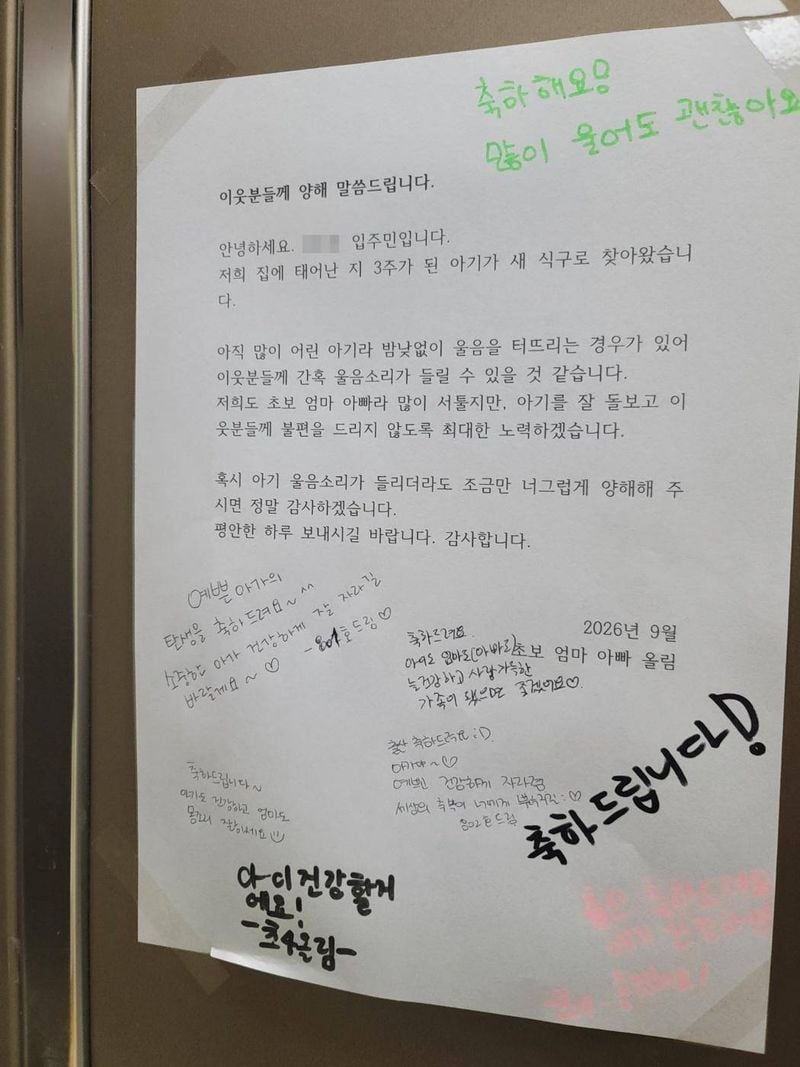 축하해요!
많이 울어도 괜찮아요
이웃분들께 양해 말씀드립니다.
안녕하세요. 입주민입니다.
저희 집에 태어난 지 3주가 된 아기가 새 식구로 찾아왔습니
다.
아직 많이 어린 아기라 밤낮없이 울음을 터뜨리는 경우가 있어
이웃분들께 간혹 울음소리가 들릴 수 있을 것 같습니다.
저희도 초보 엄마 아빠라 많이 서툴지만, 아기를 잘 돌보고 이
웃분들께 불편을 드리지 않도록 최대한 노력하겠습니다.
혹시 아기 울음소리가 들리더라도 조금만 너그럽게 양해해 주
시면 정말 감사하겠습니다.
평안한 하루 보내시길 바랍니다. 감사합니다.
2026년 9월
초보 엄마 아빠 올림
예쁜 아가의
탄생을 축하드려요~ ^^
소중한 아가 건강하게 잘 자라길
바랄게요~ ♡
드림♡
축하드려요.
아이도 엄마도(아빠도)
늘 건강하고 사랑가득한
가족이 됐으면 좋겠어요♡.
축하드립니다~
아기도 건강하고 엄마도
몸조리 잘하세요
출산 축하드려요 :D
아가야~♡
예쁘고 건강하게 자라렴
세상의 축복이 너에게
드림
축하드립니다!
아이 건강할거
에요!
-초4올림-